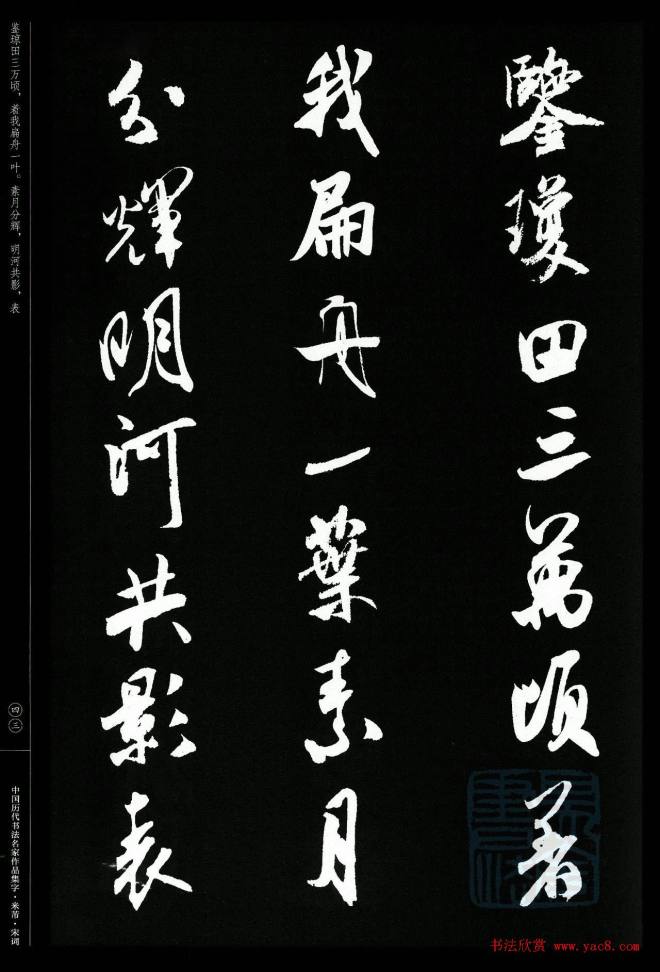 鑒瓊田三萬頃着
我扁舟一葉素月
分輝明河共影表
鉴琼田三万顷，着我扁舟一叶。素月分辉，明河共影，表
四三
中国历代书法名家作品集字·米芾·宋词
书法欣赏 www.yac8.com